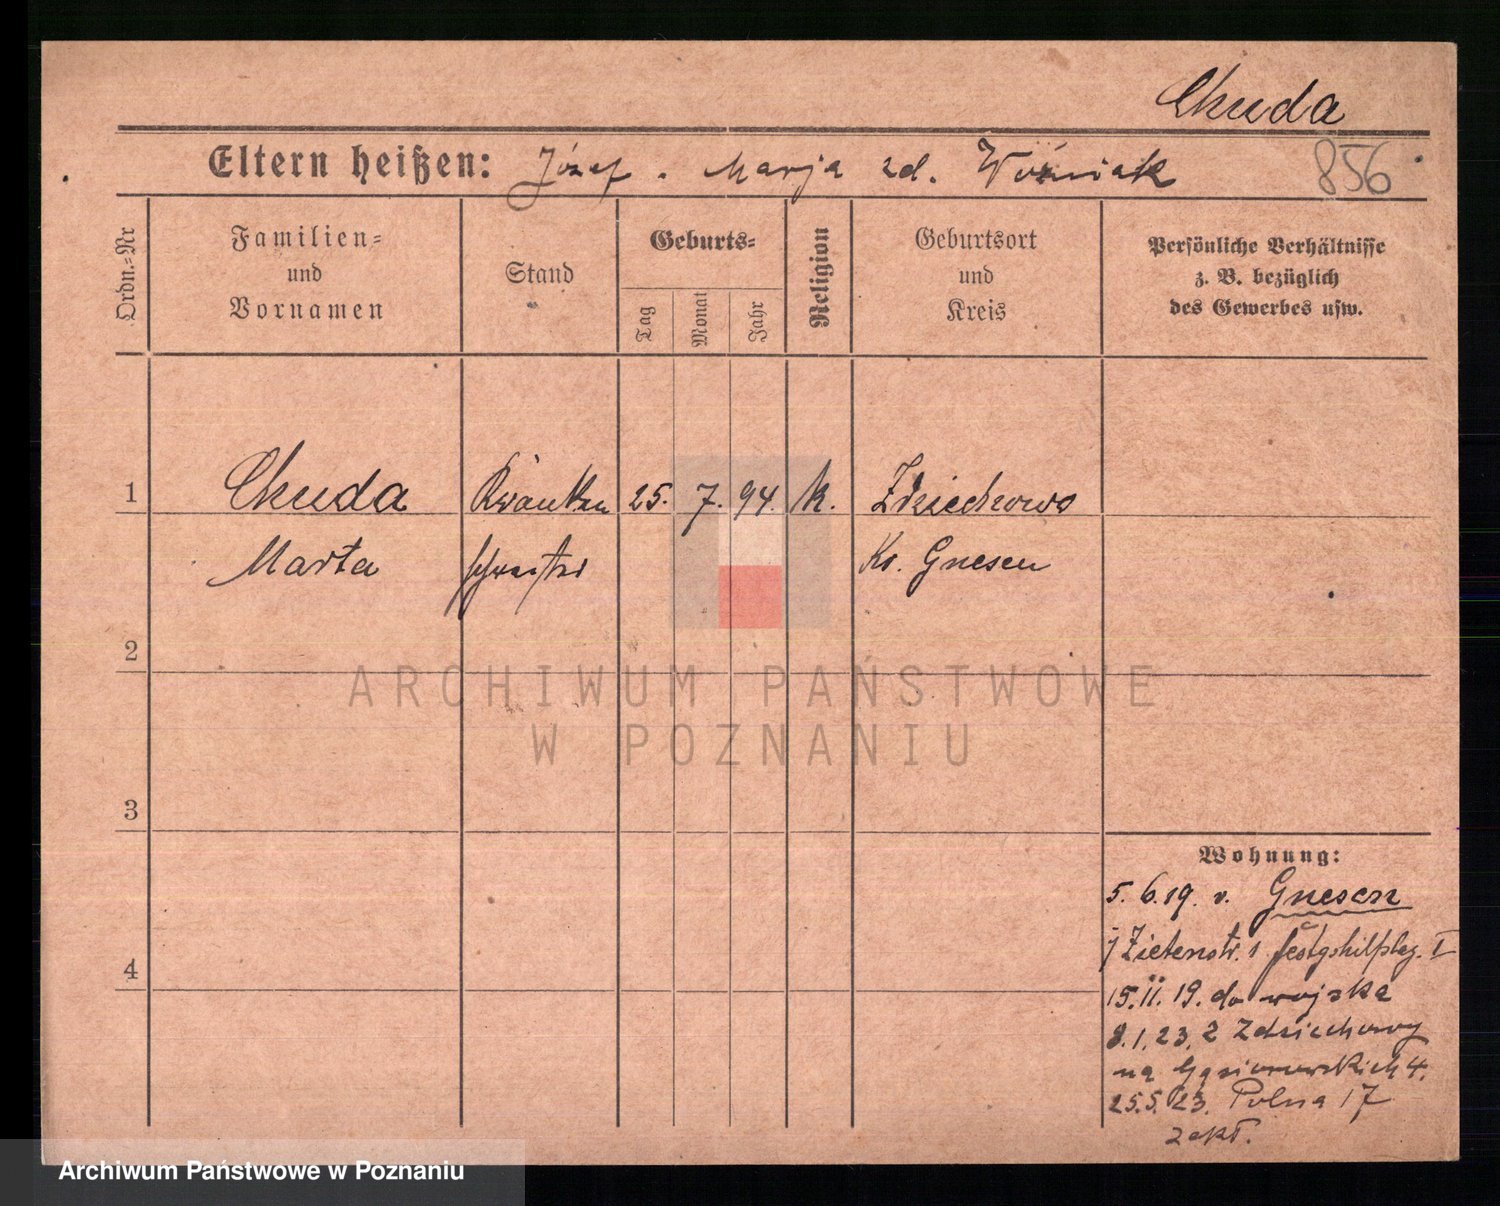 Chuda
Eltern heißen: Józef . Marja zd. Woźniak
856
Ordn.=Nr
Familien=
und
Vornamen
Stand
Geburts=
Tag
Monat
Jahr
Religion
Geburtsort
und
Kreis
Persönliche Verhältnisse
z. B. bezüglich
des Gewerbes usw.
1 Chuda Kranken 25. 7. 94. k. Zdziechowo
Marta schwester Kr. Gnesen
2
3
4
Wohnung:
5. 6. 19. v. Gnesen
Zietenstr. 1 Festgshilfslaz. I
15. II. 19. do wojska
8. 1. 23. z Zdziechowy
na Gąsiorowskich 4.
25. 5. 23. Polna 17
zakł.
ARCHIWUM PAŃSTWOWE
W POZNANIU
Archiwum Państwowe w Poznaniu